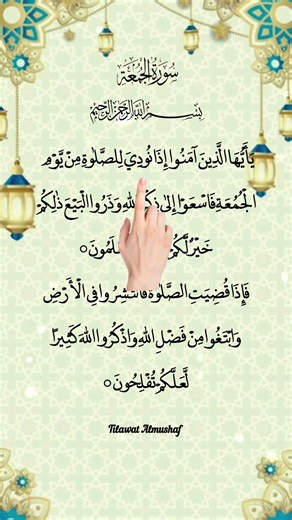 سُورَةُ الْجُمُعَةِ
بِسْمِ اللهِ الرَّحْمٰنِ الرَّحِيْمِ
يٰٓاَيُّهَا الَّذِينَ آمَنُوا إِذَا نُودِيَ لِلصَّلٰوةِ مِنْ يَّوْمِ
الْجُمُعَةِ فَاسْعَوْا إِلىٰ ذِكْرِ اللهِ وَذَرُوا الْبَيْعَ ذٰلِكُمْ
خَيْرٌ لَّكُمْ
فَإِذَا قُضِيَتِ الصَّلٰوةُ فَانْتَشِرُوا فِي الْأَرْضِ
وَابْتَغُوا مِنْ فَضْلِ اللهِ وَاذْكُرُوا اللهَ كَثِيرًا
لَّعَلَّكُمْ تُفْلِحُونَ ○
Tilawat Almushaf